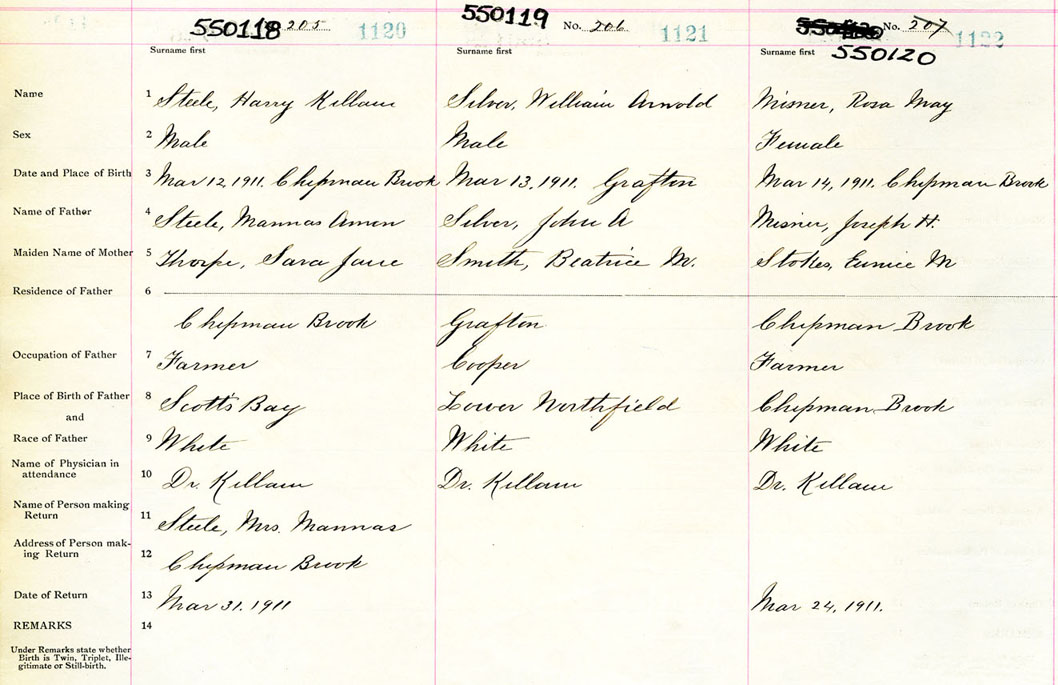 550118 205 1120 550119 No. 206 1121 No. 207 1122
Surname first Surname first Surname first 550120
Name 1 Steele, Harry Killam Silver, William Arnold Misner, Rosa May
Sex 2 Male Male Female
Date and Place of Birth 3 Mar 12, 1911. Chipman Brook Mar 13, 1911. Grafton Mar 14, 1911. Chipman Brook
Name of Father 4 Steele, Mannas Amon Silver, John A Misner, Joseph H.
Maiden Name of Mother 5 Thorpe, Sara Jane Smith, Beatrice M. Stokes, Eunice M
Residence of Father 6
Chipman Brook Grafton Chipman Brook
Occupation of Father 7 Farmer Cooper Farmer
Place of Birth of Father 8 Scotts Bay Lower Northfield Chipman Brook
and
Race of Father 9 White White White
Name of Physician in
attendance 10 Dr. Killam Dr. Killam Dr. Killam
Name of Person making
Return 11 Steele, Mrs. Mannas
Address of Person mak-
ing Return 12 Chipman Brook
Date of Return 13 Mar 31, 1911 Mar 24, 1911.
REMARKS 14
Under Remarks state whether
Birth is Twin, Triplet, Ille-
gitimate or Still-birth.